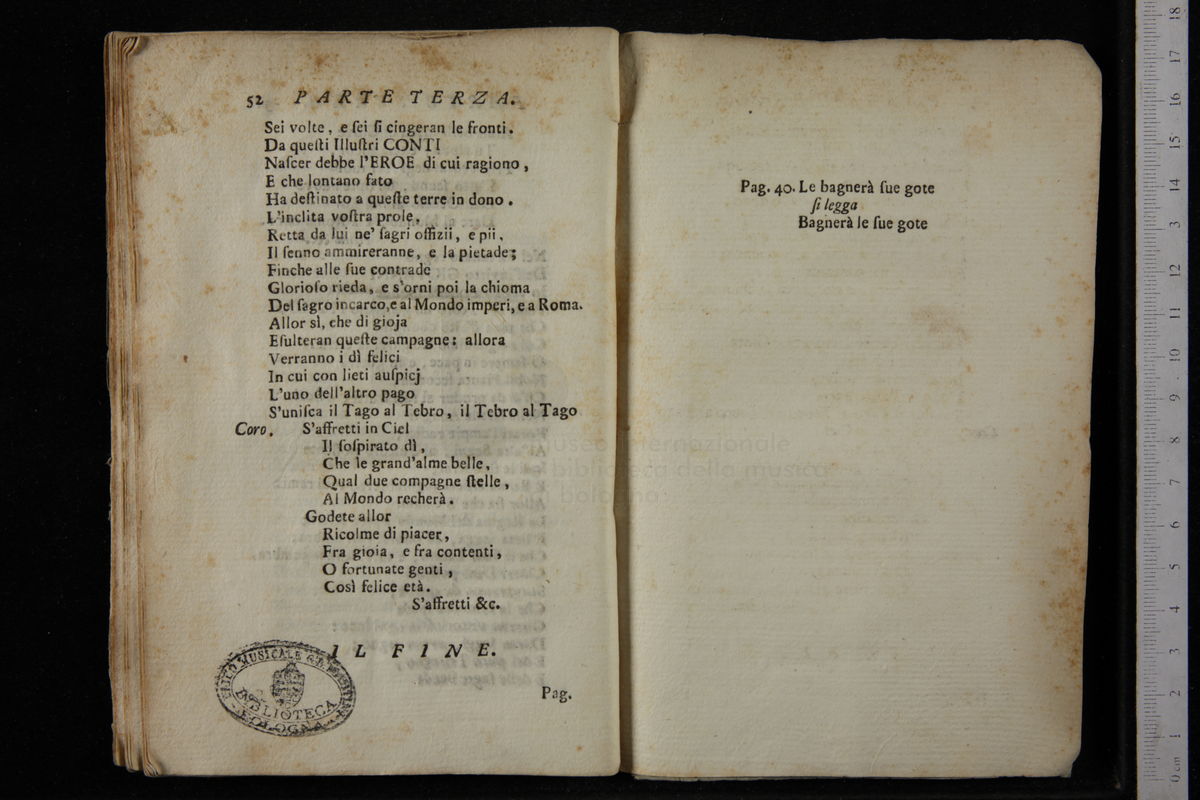 52 PARTE TERZA.
Sei volte, e ſei ſi cingeran le fronti.
Da queſti Illuſtri CONTI
Naſcer debbe l'EROE di cui ragiono,
E che lontano fato
Ha deſtinato a queſte terre in dono.
L'inclita voſtra prole,
Retta da lui ne' ſagri offizii, e pii,
Il ſenno ammireranne, e la pietade;
Finche alle ſue contrade
Glorioſo rieda, e s'orni poi la chioma
Del ſagro incarco, e al Mondo imperi, e a Roma.
Allor sì, che di gioja
Eſulteran queſte campagne: allora
Verranno i dì felici
In cui con lieti auſpicj
L'uno dell'altro pago
S'uniſca il Tago al Tebro, il Tebro al Tago
Coro. S'affretti in Ciel
Il ſoſpirato dì,
Che le grand'alme belle,
Qual due compagne ſtelle,
Al Mondo recherà.
Godete allor
Ricolme di piacer,
Fra gioia, e fra contenti,
O fortunate genti,
Così felice età.
S'affretti &c.
IL FINE.
Pag.
MUSICALE
BIBLIOTECA
BOLOGNA
Pag. 40. Le bagnerà ſue gote
ſi legga
Bagnerà le ſue gote
museo internazionale
biblioteca della musica
bologna
0 cm 1 2 3 4 5 6 7 8 9 10 11 12 13 14 15 16 17 18